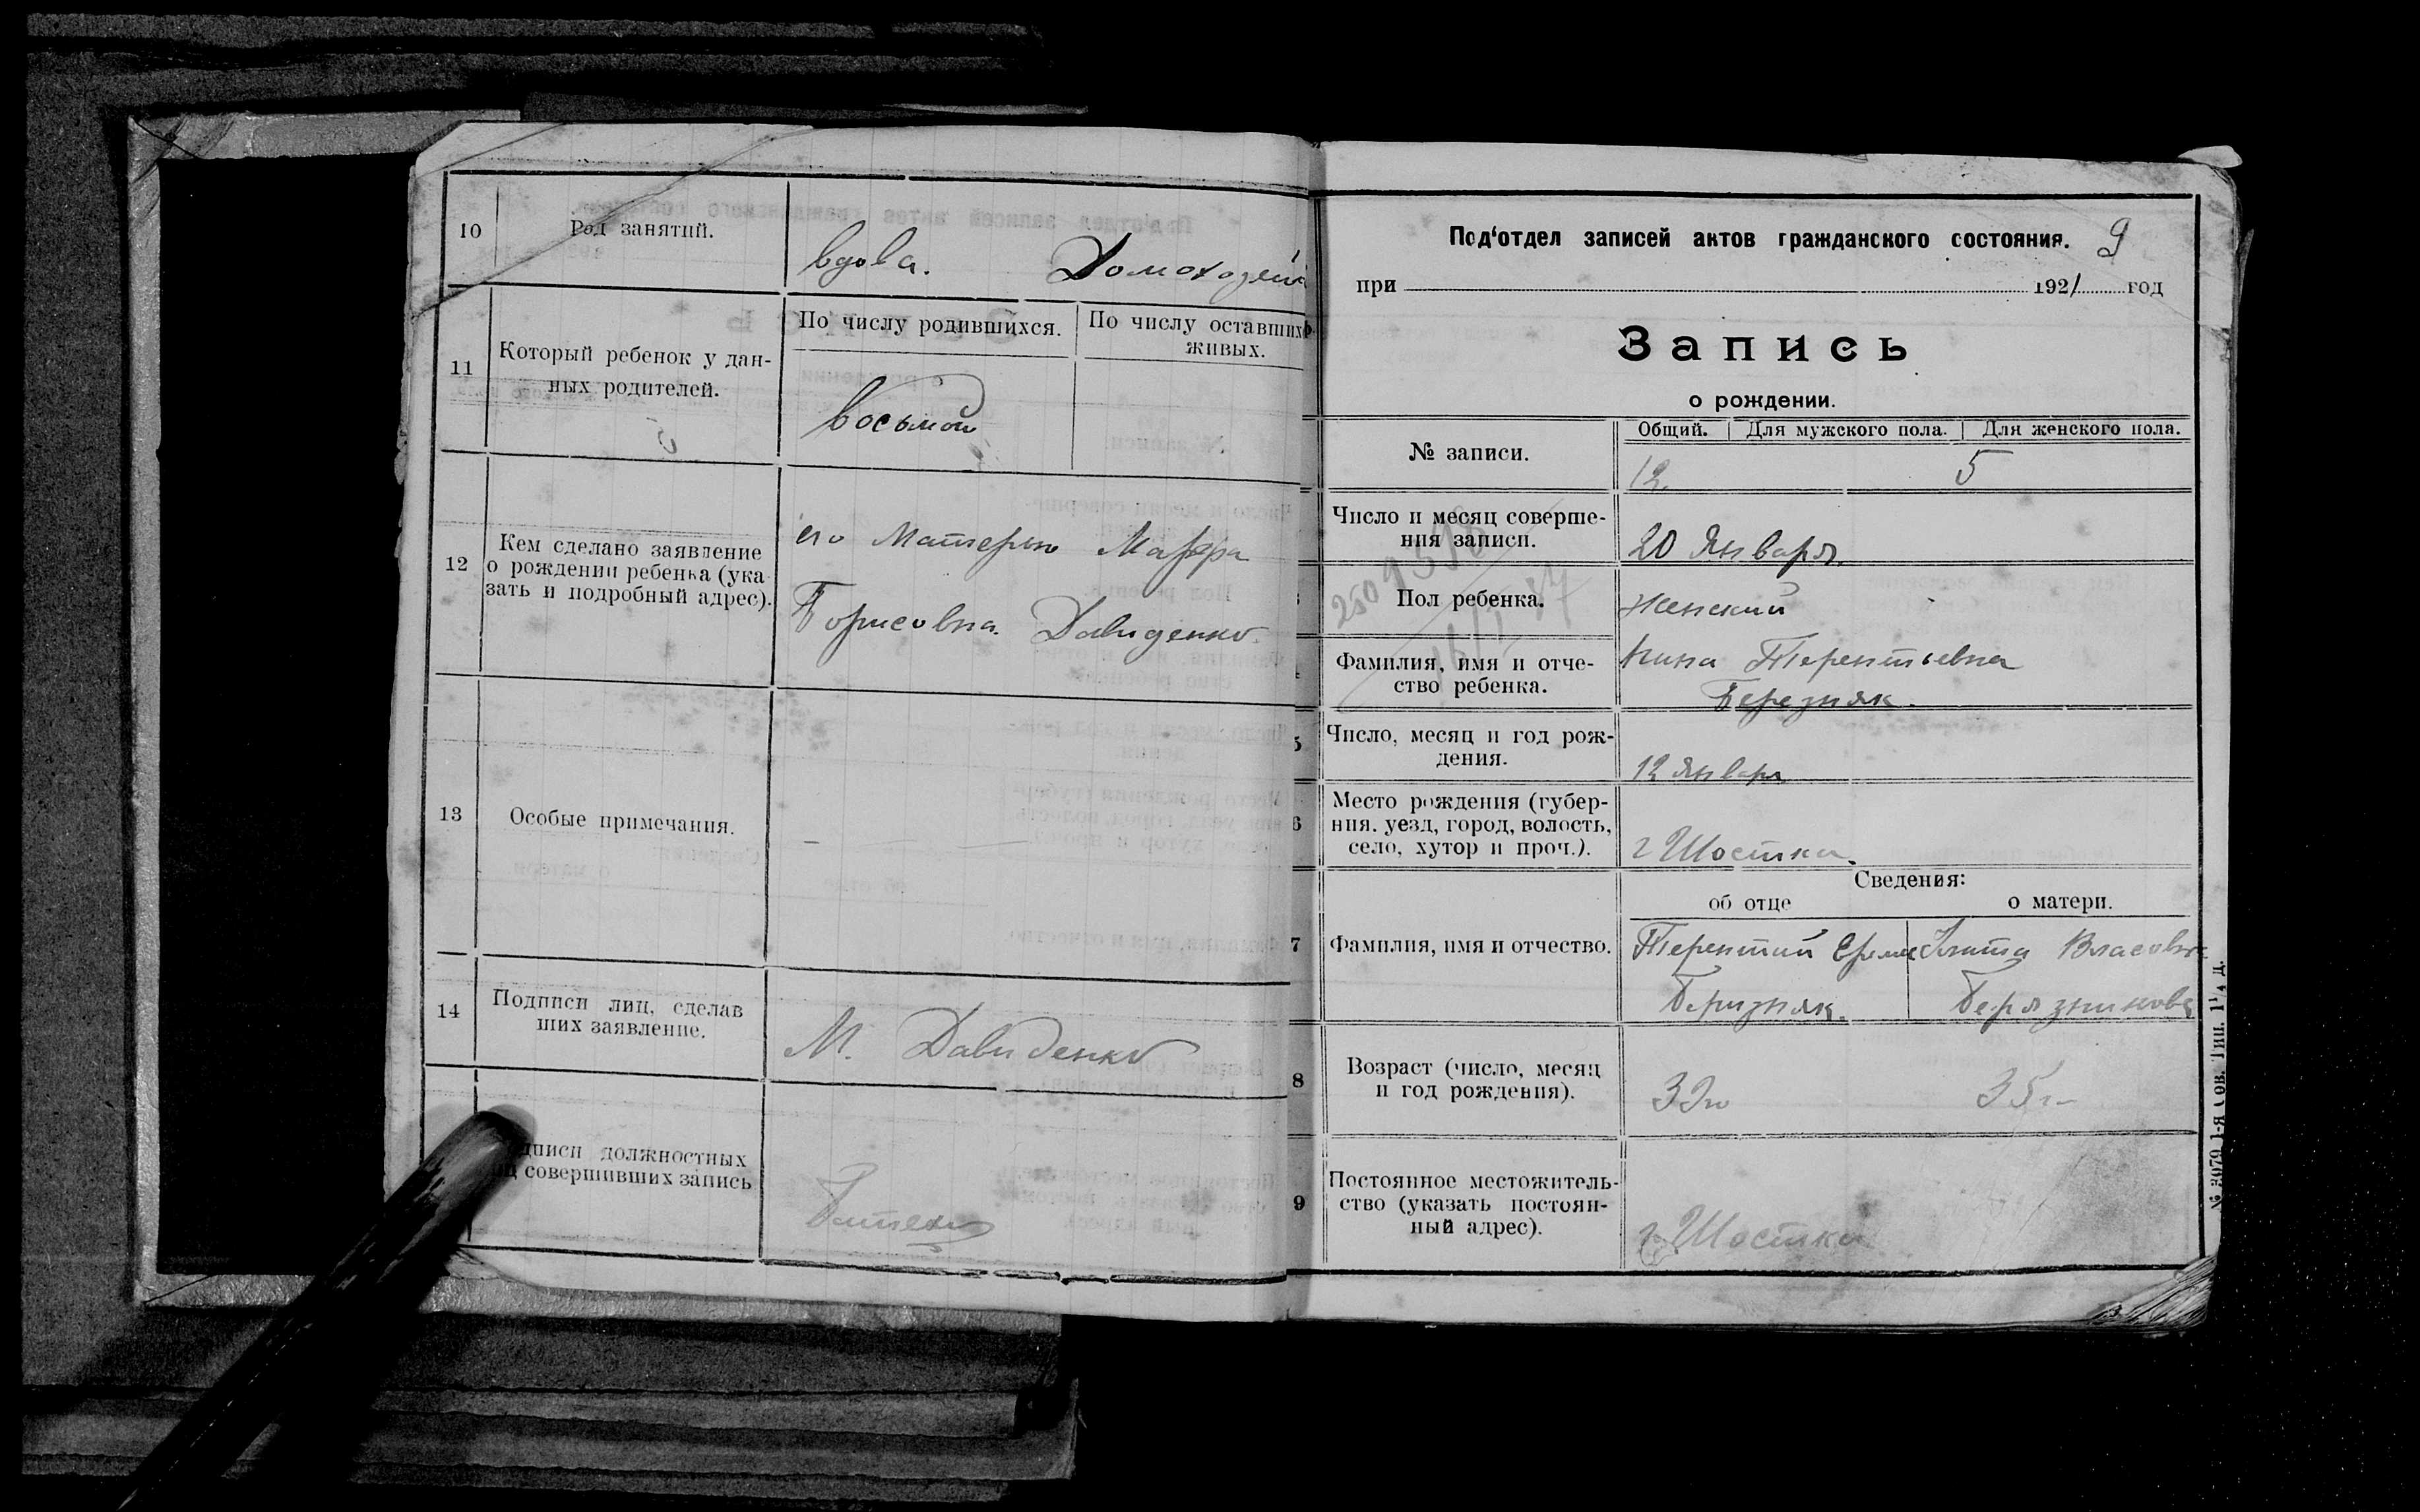 10
Род занятий.
вдова. Домохозяйка
11
Который ребенок у дан-
ных родителей.
По числу родившихся.
По числу оставшихся
живых.
восьмой
12
Кем сделано заявление
о рождении ребенка (ука
зать и подробный адрес).
его Матерью Марфа
Борисовна Давиденко.
13
Особые примечания.
14
Подписи лиц, сделав
ших заявление.
М. Давиденко
дписи должностных
ц совершивших запись
Под'отдел записей актов гражданского состояния.
9
при 1921 год
Запись
о рождении.
№ записи.
Общий. Для мужского пола. Для женского пола.
12. 5
Число и месяц соверше-
ния записи.
20 Января.
Пол ребенка.
Женский
Фамилия, имя и отче-
ство ребенка.
Нина Терентьевна
Березняк.
5
Число, месяц и год рож-
дения.
12 Января
6
Место рождения (губер-
ния. уезд, город, волость,
село, хутор и проч.).
г Шостка.
Сведения:
об отце о матери.
7
Фамилия, имя и отчество.
Терентий Ереме Власовна
Беризняк. Берязникова
8
Возраст (число, месяц
и год рождения).
35
9
Постоянное местожитель-
ство (указать постоян-
ный адрес).
г. Шостка
№ 3979 1-я Сов. Тип. 1¼ д.